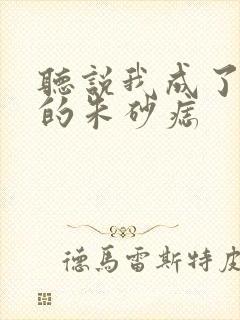 聽說我成了
的朱砂痣
德馬雷斯特皮